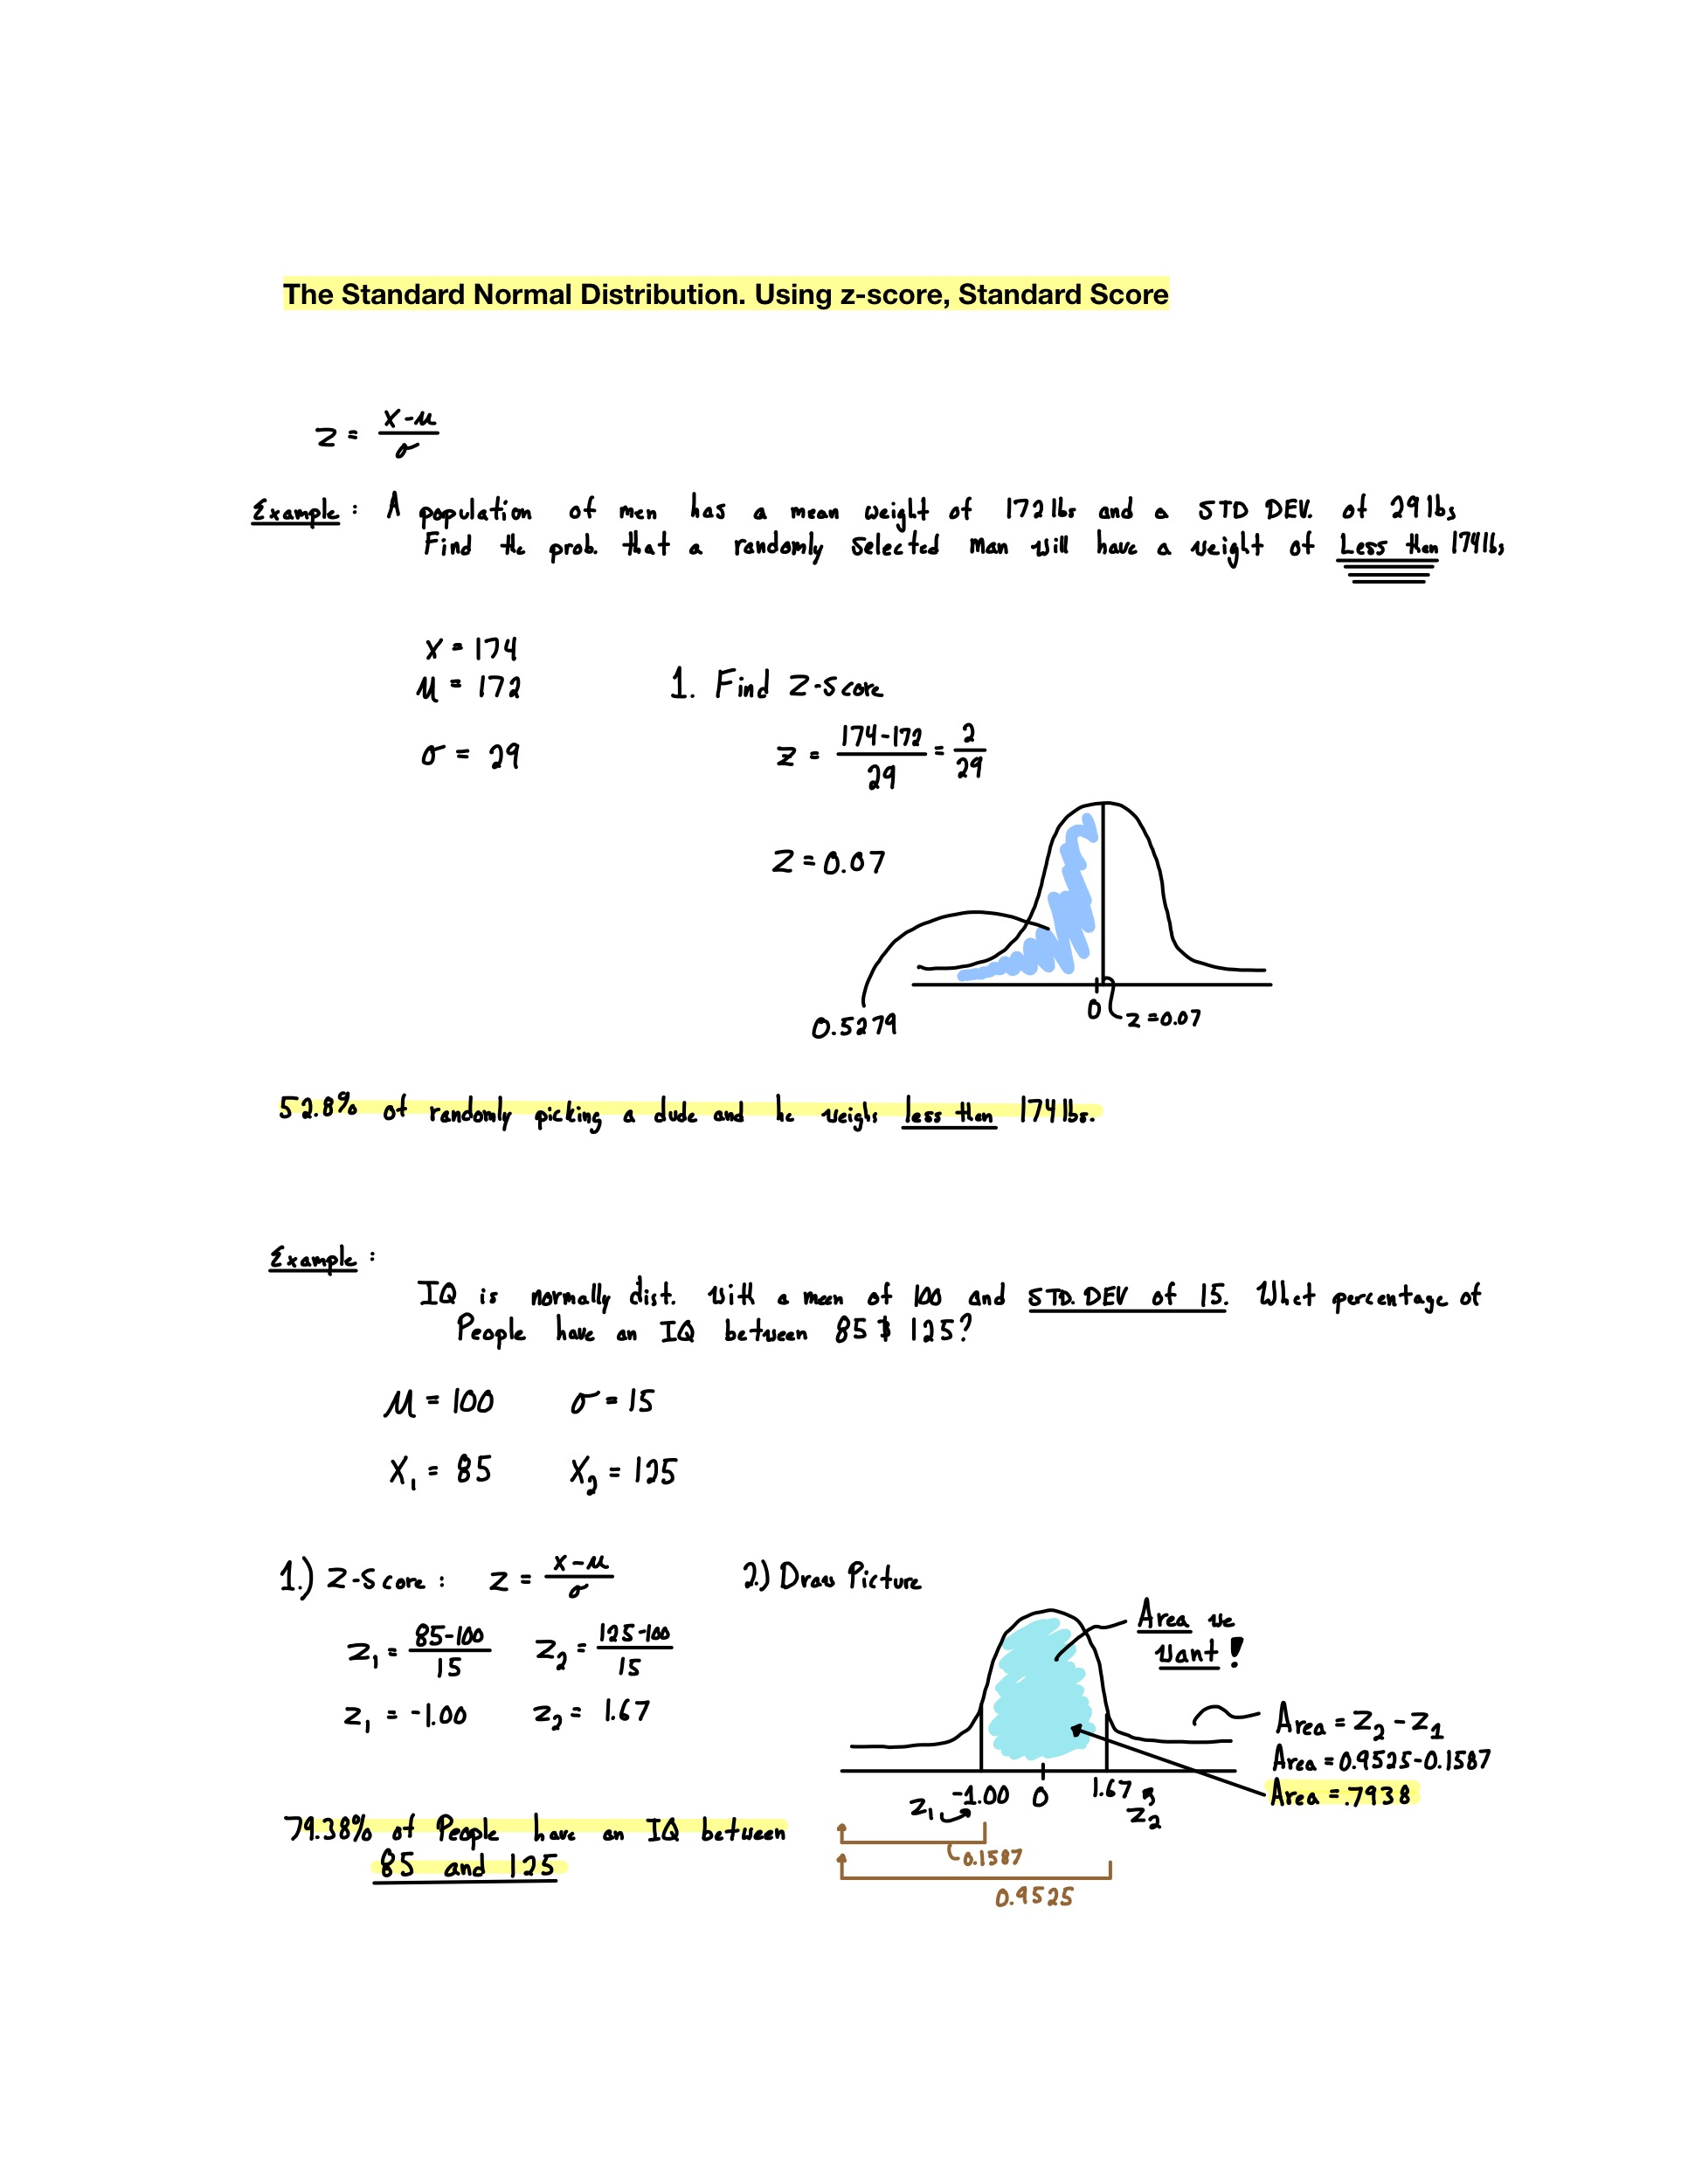 The Standard Normal Distribution. Using z-score, Standard Score
z = (x-μ)/σ
Example : A population of men has a mean weight of 172 lbs and a STD DEV. of 29 lbs
Find the prob. that a randomly selected man will have a weight of Less than 174 lbs
x = 174
μ = 172
1. Find z-score
σ = 29
z = (174-172)/29 = 2/29
z = 0.07
0
z = 0.07
0.5279
52.8% of randomly picking a dude and he weighs less than 174 lbs.
Example :
IQ is normally dist. with a mean of 100 and STD. DEV of 15. What percentage of
People have an IQ between 85 & 125?
μ = 100 σ = 15
X₁ = 85 X₂ = 125
1.) z-score : z = (x-μ)/σ
2.) Draw Picture
z₁ = (85-100)/15 z₂ = (125-100)/15
z₁ = -1.00 z₂ = 1.67
Area we
want !
Area = z₂ - z₁
Area = 0.9525-0.1587
Area = .7938
-1.00 0 1.67
z₁ z₂
0.1587
0.9525
79.38% of People have an IQ between
85 and 125